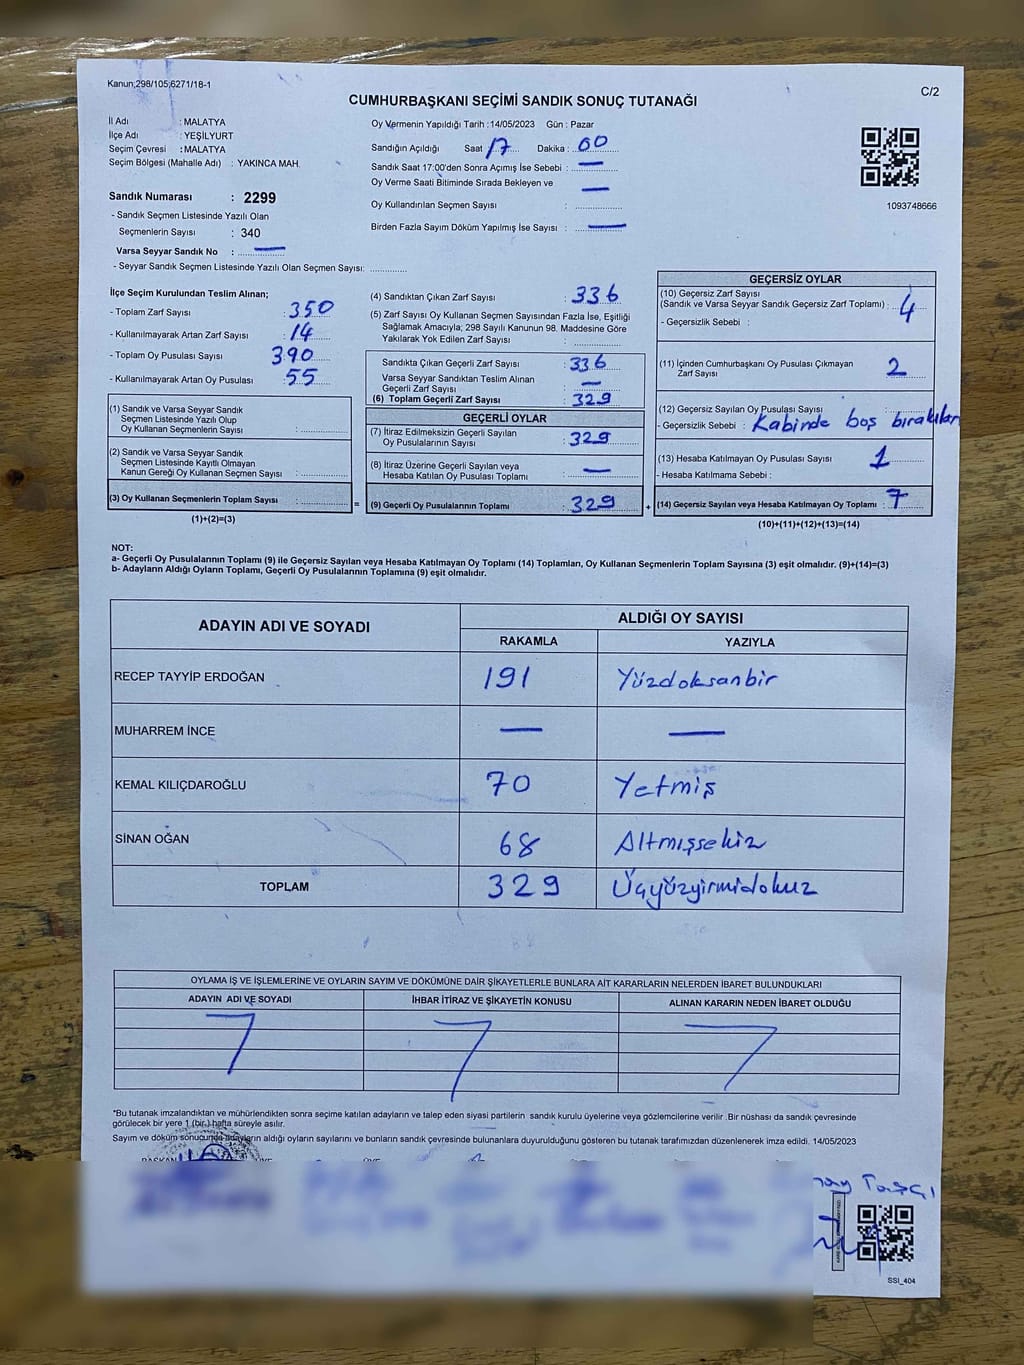 Kanun;298/105;6271/18-1
C/2
CUMHURBAŞKANI SEÇİMİ SANDIK SONUÇ TUTANAĞI
İl Adı : MALATYA
İlçe Adı : YEŞİLYURT
Seçim Çevresi : MALATYA
Seçim Bölgesi (Mahalle Adı) : YAKINCA MAH.
Sandık Numarası : 2299
- Sandık Seçmen Listesinde Yazılı Olan
Seçmenlerin Sayısı : 340
Varsa Seyyar Sandık No : —
- Seyyar Sandık Seçmen Listesinde Yazılı Olan Seçmen Sayısı: ............
Oy Vermenin Yapıldığı Tarih :14/05/2023 Gün : Pazar
Sandığın Açıldığı Saat 17 Dakika : 00
Sandık Saat 17:00'den Sonra Açımış İse Sebebi : —
Oy Verme Saati Bitiminde Sırada Bekleyen ve —
Oy Kullandırılan Seçmen Sayısı : ............
Birden Fazla Sayım Döküm Yapılmış İse Sayısı : —
1093748666
İlçe Seçim Kurulundan Teslim Alınan;
- Toplam Zarf Sayısı : 350
- Kullanılmayarak Artan Zarf Sayısı : 14
- Toplam Oy Pusulası Sayısı : 390
- Kullanılmayarak Artan Oy Pusulası : 55
(1) Sandık ve Varsa Seyyar Sandık
Seçmen Listesinde Yazılı Olup
Oy Kullanan Seçmenlerin Sayısı : ............
(2) Sandık ve Varsa Seyyar Sandık
Seçmen Listesinde Kayıtlı Olmayan
Kanun Gereği Oy Kullanan Seçmen Sayısı : ............
(3) Oy Kullanan Seçmenlerin Toplam Sayısı : ............
(1)+(2)=(3)
(4) Sandıktan Çıkan Zarf Sayısı : 336
(5) Zarf Sayısı Oy Kullanan Seçmen Sayısından Fazla İse, Eşitliği
Sağlamak Amacıyla; 298 Sayılı Kanunun 98. Maddesine Göre
Yakılarak Yok Edilen Zarf Sayısı : ............
Sandıkta Çıkan Geçerli Zarf Sayısı : 336
Varsa Seyyar Sandıktan Teslim Alınan
Geçerli Zarf Sayısı : —
(6) Toplam Geçerli Zarf Sayısı : 329
GEÇERLİ OYLAR
(7) İtiraz Edilmeksizin Geçerli Sayılan
Oy Pusulalarının Sayısı : 329
(8) İtiraz Üzerine Geçerli Sayılan veya
Hesaba Katılan Oy Pusulası Toplamı : —
=
(9) Geçerli Oy Pusulalarının Toplamı : 329
+
GEÇERSİZ OYLAR
(10) Geçersiz Zarf Sayısı
(Sandık ve Varsa Seyyar Sandık Geçersiz Zarf Toplamı) : 4
- Geçersizlik Sebebi :
(11) İçinden Cumhurbaşkanı Oy Pusulası Çıkmayan
Zarf Sayısı : 2
(12) Geçersiz Sayılan Oy Pusulası Sayısı
- Geçersizlik Sebebi : Kabinde boş bırakılan
(13) Hesaba Katılmayan Oy Pusulası Sayısı : 1
- Hesaba Katılmama Sebebi :
(14) Geçersiz Sayılan veya Hesaba Katılmayan Oy Toplamı : 7
(10)+(11)+(12)+(13)=(14)
NOT:
a- Geçerli Oy Pusulalarının Toplamı (9) ile Geçersiz Sayılan veya Hesaba Katılmayan Oy Toplamı (14) Toplamları, Oy Kullanan Seçmenlerin Toplam Sayısına (3) eşit olmalıdır. (9)+(14)=(3)
b- Adayların Aldığı Oyların Toplamı, Geçerli Oy Pusulalarının Toplamına (9) eşit olmalıdır.
ADAYIN ADI VE SOYADI ALDIĞI OY SAYISI
RAKAMLA YAZIYLA
RECEP TAYYİP ERDOĞAN 191 Yüzdoksanbir
MUHARREM İNCE — —
KEMAL KILIÇDAROĞLU 70 Yetmiş
SİNAN OĞAN 68 Altmışsekiz
TOPLAM 329 Üçyüzyirmidokuz
OYLAMA İŞ VE İŞLEMLERİNE VE OYLARIN SAYIM VE DÖKÜMÜNE DAİR ŞİKAYETLERLE BUNLARA AİT KARARLARIN NELERDEN İBARET BULUNDUKLARI
ADAYIN ADI VE SOYADI İHBAR İTİRAZ VE ŞİKAYETİN KONUSU ALINAN KARARIN NEDEN İBARET OLDUĞU
*Bu tutanak imzalandıktan ve mühürlendikten sonra seçime katılan adayların ve talep eden siyasi partilerin sandık kurulu üyelerine veya gözlemcilerine verilir .Bir nüshası da sandık çevresinde
görülecek bir yere 1 (bir.) hafta süreyle asılır.
Sayım ve döküm sonucunda adayların aldığı oyların sayılarını ve bunların sandık çevresinde bulunanlara duyurulduğunu gösteren bu tutanak tarafımızdan düzenlenerek imza edildi. 14/05/2023
Taşçı
SSI_404